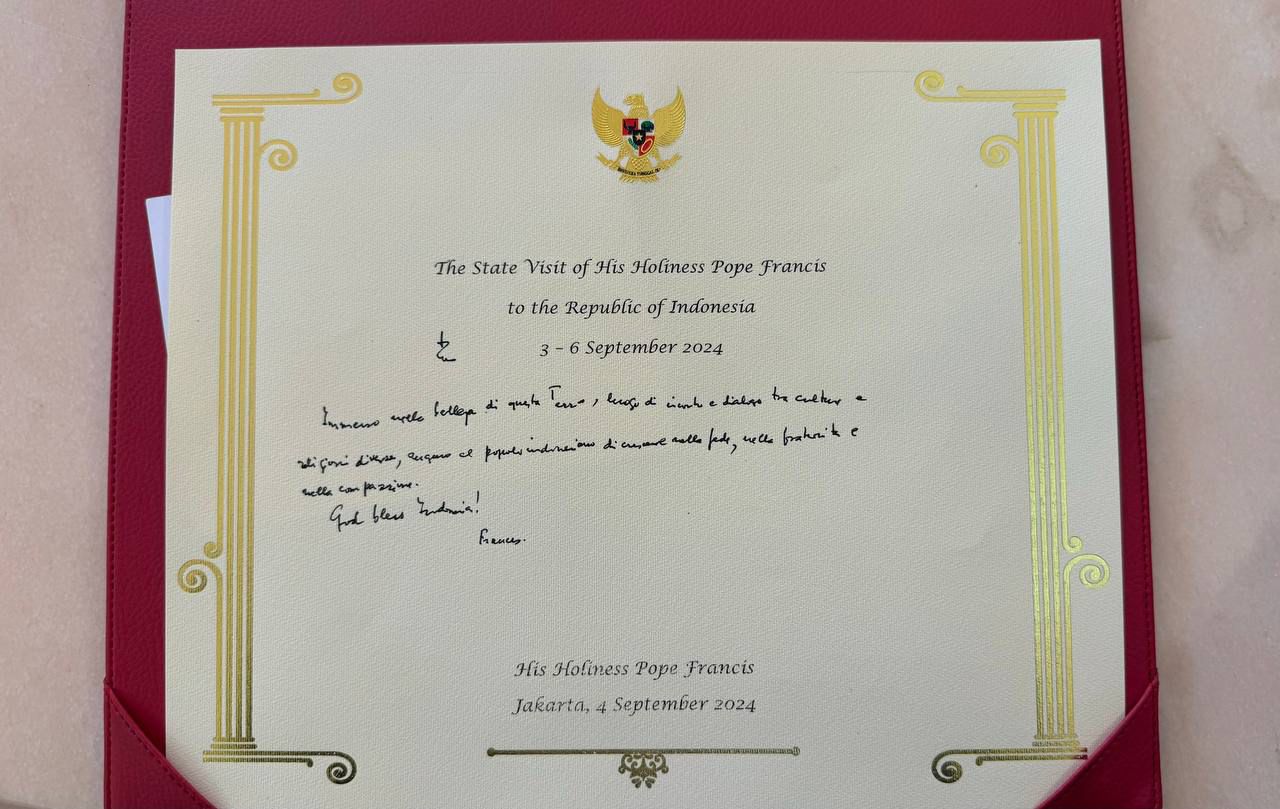 BHINNEKA TUNGGAL IKA
The State Visit of His Holiness Pope Francis
to the Republic of Indonesia
3 – 6 September 2024
Immerso nella bellezza di questa Terra, luogo di incontro e dialogo tra culture e
religioni diverse, auguro al popolo indonesiano di crescere nella fede, nella fraternità e
nella compassione.
God bless Indonesia!
Francesco
His Holiness Pope Francis
Jakarta, 4 September 2024